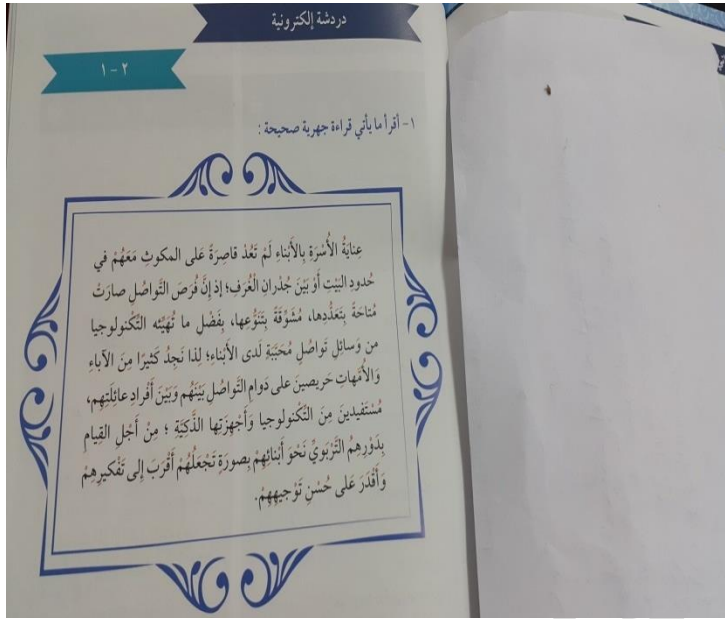 دردشة إلكترونية
٢ - ١
١- أقرأ ما يأتي قراءة جهرية صحيحة :
عِنايَةُ الأُسْرَةِ بِالأَبْناءِ لَمْ تَعُدْ قاصِرَةً عَلى المكوثِ مَعَهُمْ في
حُدودِ البَيْتِ أَوْ بَيْنَ جُدْرانِ الْغُرَفِ؛ إذ إنَّ فُرَصَ التَّواصُلِ صارَتْ
مُتاحَةً بِتَعَدُّدِها، مُشَوِّقَةً بِتَنَوُّعِها، بِفَضْلِ ما تُهَيِّئه التُّكْنولوجيا
من وَسائِلِ تَواصُلٍ مُحَبَّبَةٍ لَدى الأَبْناءِ؛ لِذا نَجِدُ كَثيرًا مِنَ الآباءِ
وَالأُمَّهاتِ حَريصينَ على دَوامِ التَّواصُلِ بَيْنَهُم وَبَيْنَ أَفْرادِ عائِلَتِهِم،
مُسْتَفيدينَ مِنَ التُّكْنولوجيا وَأَجْهِزَتِها الذَّكِيَّةِ ؛ مِنْ أَجْلِ القِيامِ
بِدَوْرِهِمُ التَّرْبَوِيِّ نَحْوَ أَبْنائِهِمْ بِصورَةٍ تَجْعَلُهُمْ أَقْرَبَ إِلى تَفْكيرِهِمْ
وَأَقْدَرَ عَلى حُسْنِ تَوْجيهِهِمْ.